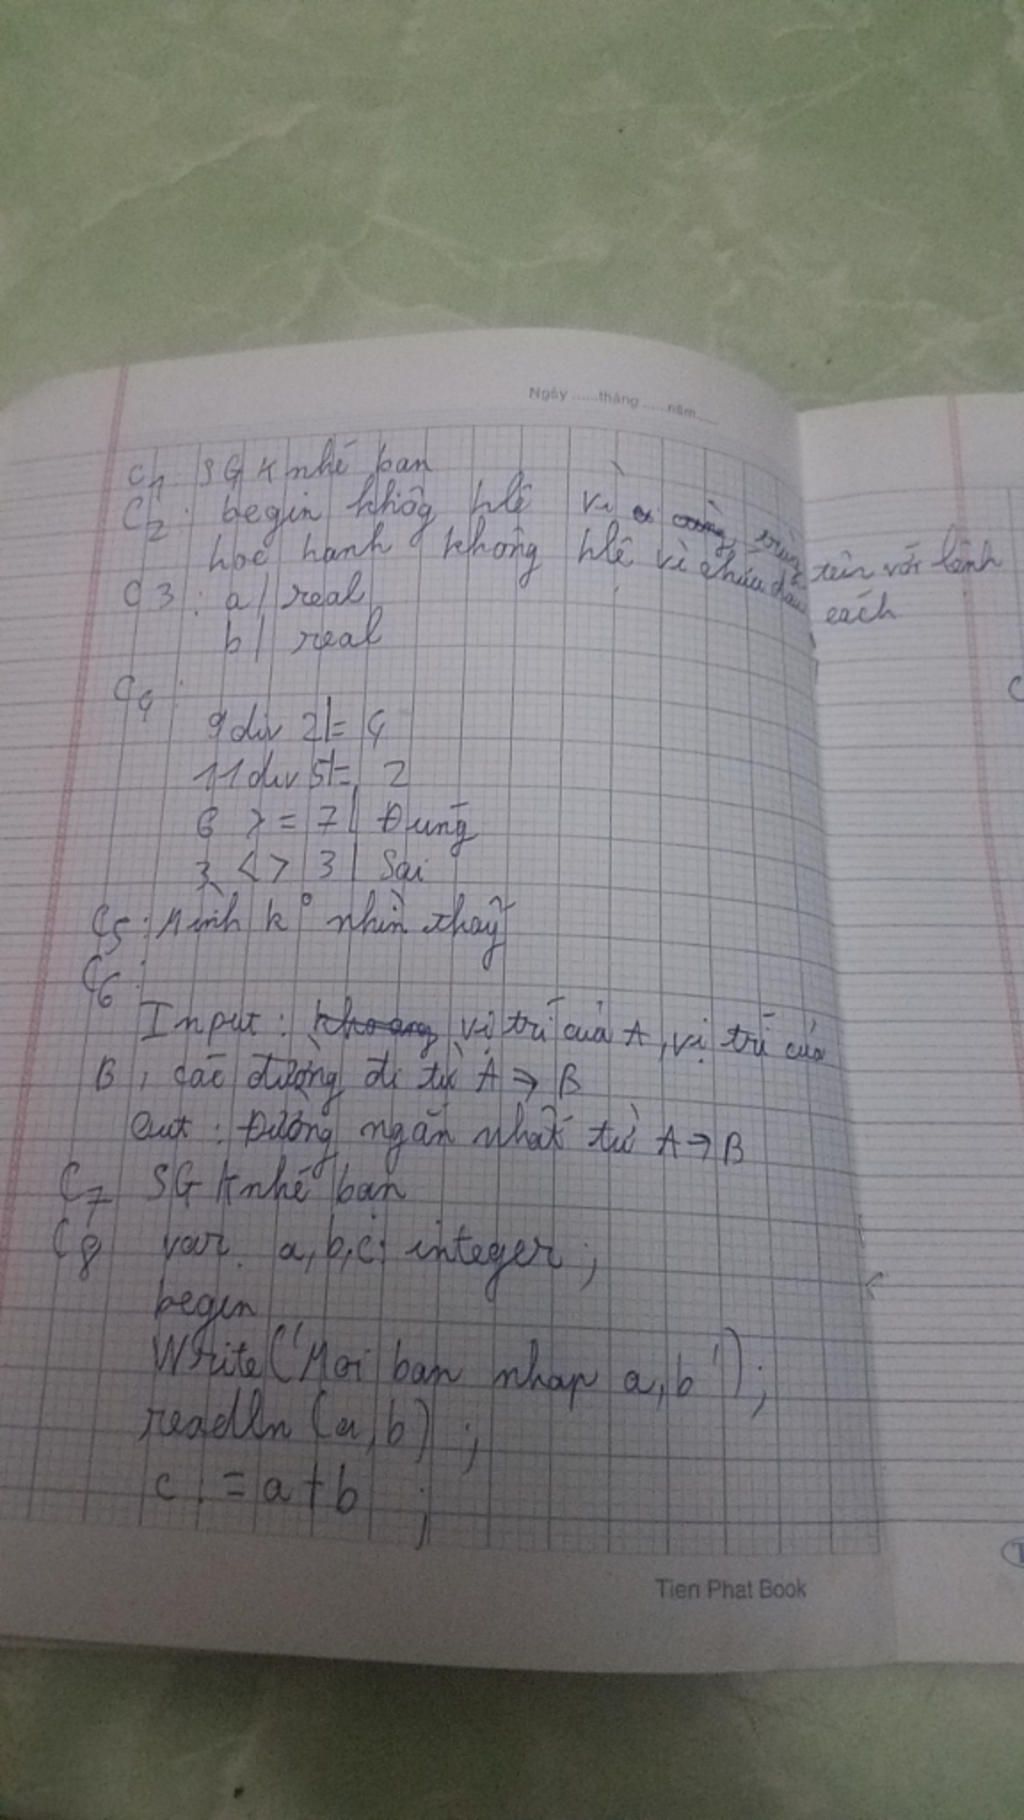 Ngày ......tháng ......năm......
C1 SGK nhé bạn
C2: begin không hlệ vì trùng tên với lệnh
hoc hanh không hlệ vì chứa dấu cách
C3: a/ real
b/ real
C4:
9 div 2 = 4
11 div 5 = 2
6 >= 7 | Đúng
3 <> 3 | Sai
C5: Mình k° nhìn thấy
C6:
Input: vị trí của A, vị trí của
B, các đường đi từ A → B
Out: Đường ngắn nhất từ A → B
C7 SGK nhé bạn
C8 var a,b,c: integer;
begin
Write('Moi ban nhap a,b');
readln (a,b);
c := a+b ;
Tien Phat Book